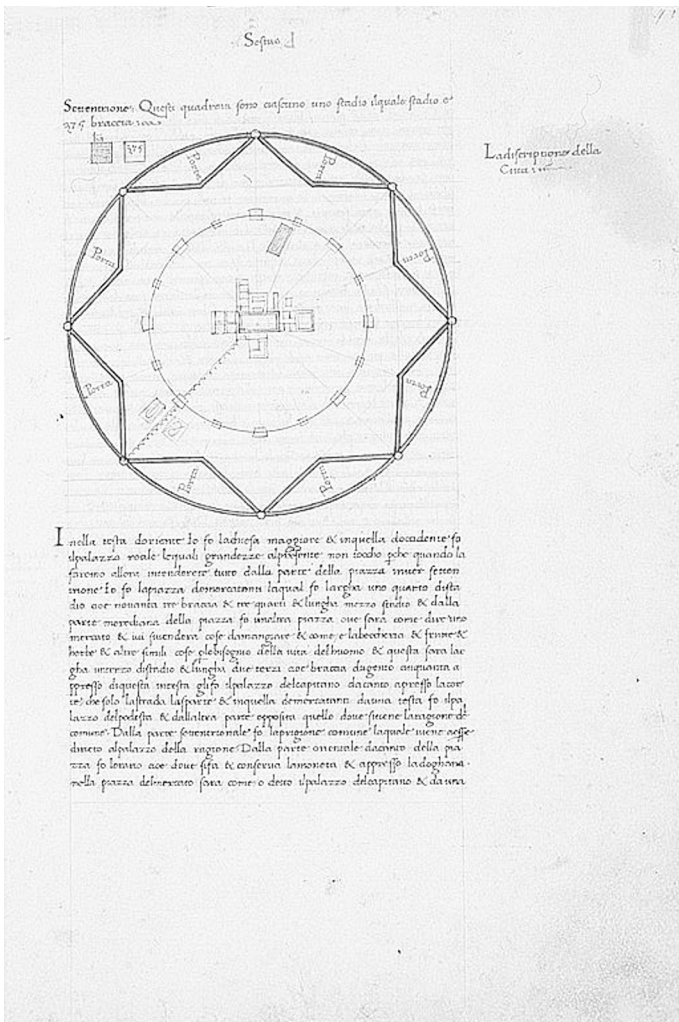 Sestus
Settentrione. Questi quadretti sono ciascuno uno stadio ilquale stadio e
375 braccia
375
La discriptione della
Citta
Porta
Porta
Porta
Porta
Porta
Porta
Porta
Porta
Inella testa doriente Io fo lachiesa maggiore & inquella doccidente fo
ilpalazzo reale lequali grandezze alpresente non toccho pche quando la
faremo allora intenderete tutto dalla parte della piazza inver setten
trione Io fo lapiazza demercatanti laqual fo largha uno quarto dista
dio cioe novanta tre braccia & tre quarti & lungha mezzo stadio & dalla
parte merediana della piazza fo unaltra piazza che sara come dire uno
mercato & ivi sivendera cose damangiare & come e labeccheria & frutte &
herbe & altre simili cose plobisogno della vita delhuomo & questa sara lar
gha interzo distadio & lungha due terzi cioe braccia dugento cinquanta a
ppresso diquesta intesta glifo ilpalazzo delcapitano dacanto apresso lacor
te che solo lastrada lasparte & inquella demercatanti dauna testa fo ilpa
lazzo delpodesta & dallaltra parte opposita quello dove sitiene laragione del
comune. Dalla parte settentrionale fo laprigione comune laquale viene
dirieto alpalazzo della ragione. Dalla parte orientale dacanto della pia
zza fo lerario cioe dove sifa & conserva lamoneta & appresso ladoghana.
nella piazza delmercato sara come o detto ilpalazzo delcapitano & dauna